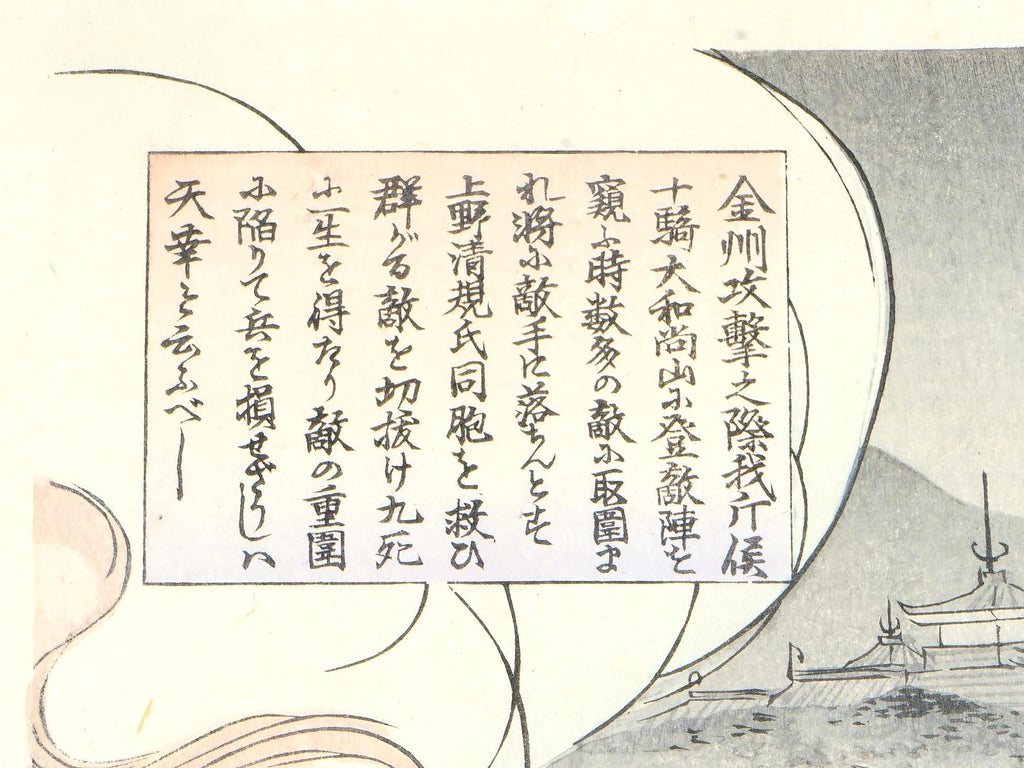 金州攻撃之際我斥候
十騎大和尚山に登敵陣を
窺ふ時数多の敵に取圍ま
れ将に敵手に落ちんとす
上野清規氏同胞を救ひ
群がる敵を切抜け九死
に一生を得たり敵の重圍
に陥りて兵を損せざりしハ
天幸と云ふべし